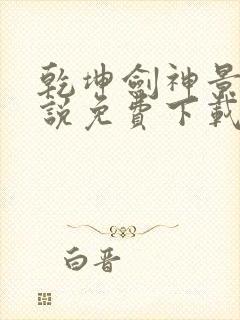 乾坤劍神景
說免費下載
白晋